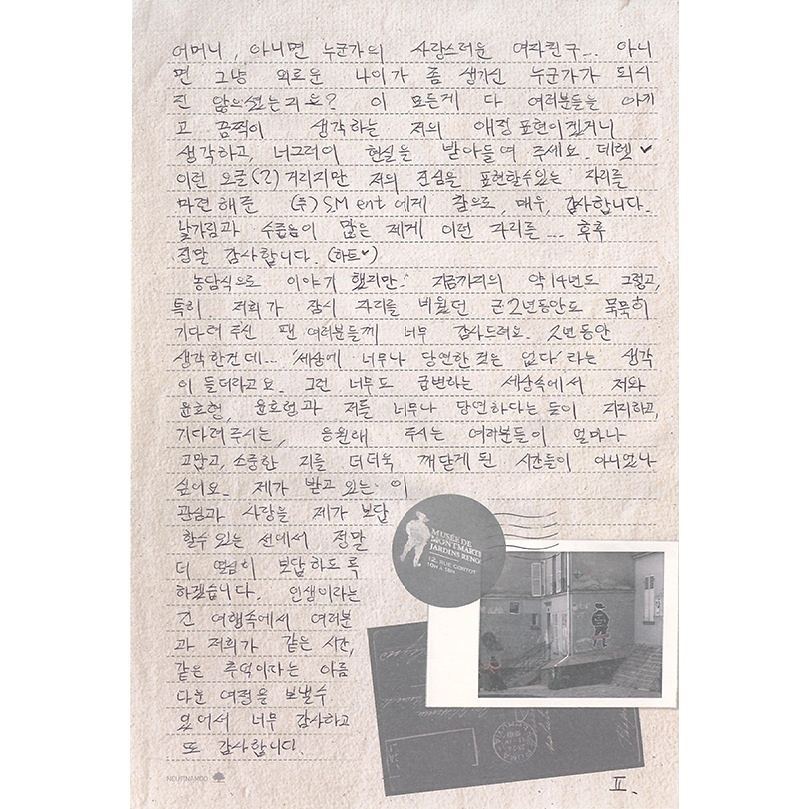 어머니, 아니면 누군가의 사랑스러운 여자친구... 아니
면 그냥 외로운 나이가 좀 생기신 누군가가 되시
진 않으셨는지요? 이 모든게 다 여러분들을 아끼
고 끔찍이 생각하는 저의 애정 표현이겠거니
생각하고, 너그러이 현실을 받아들여 주세요. 데헷✔
이런 오글(?)거리지만 저의 진심을 표현할수있는 자리를
마련해준 (주)S.M ent 에게 참으로, 매우, 감사합니다.
낯가림과 수줍음이 많은 제게 이런 자리를... 후후
정말 감사합니다. (하트♥)
농담식으로 이야기 했지만! 지금까지의 약14년도 그렇고,
특히 저희가 잠시 자리를 비웠던 근2년동안도 묵묵히
기다려주신 팬 여러분들께 너무 감사드려요. 2년동안
생각한건데... '세상에 너무나 당연한 것은 없다' 라는 생각
이 들더라고요. 그런 너무도 급변하는 세상속에서 저와
윤호형, 윤호형과 저를 너무나 당연하다는 듯이 지지하고,
기다려주시는, 응원해 주시는 여러분들이 얼마나
고맙고, 소중한 지를 더더욱 깨닫게 된 시간들이 아니었나
싶어요. 제가 받고 있는 이
관심과 사랑을 제가 보답
할수 있는 선에서 정말
더 열심히 보답하도록
하겠습니다. 인생이라는
긴 여행속에서 여러분
과 저희가 같은 시간,
같은 추억이라는 아름
다운 여정을 보낼수
있어서 너무 감사하고
또 감사합니다.
MUSÉE DE
MONTMARTRE
JARDINS RENOIR
12, RUE CORTOT
10H À 18H
II.